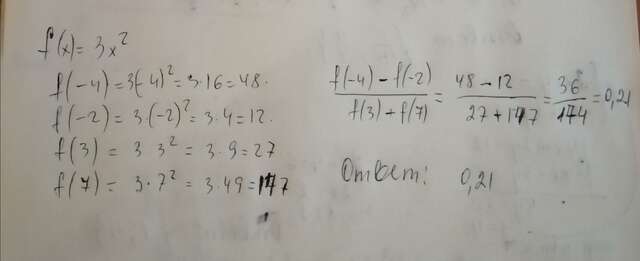 f(x) = 3x²
f(-4) = 3(-4)² = 3·16 = 48.
f(-2) = 3·(-2)² = 3·4 = 12.
f(3) = 3 3² = 3·9 = 27
f(7) = 3·7² = 3·49 = 147
f(-4) - f(-2) / f(3) + f(7) = 48 - 12 / 27 + 147 = 36 / 174 = 0,21
Ответ: 0,21